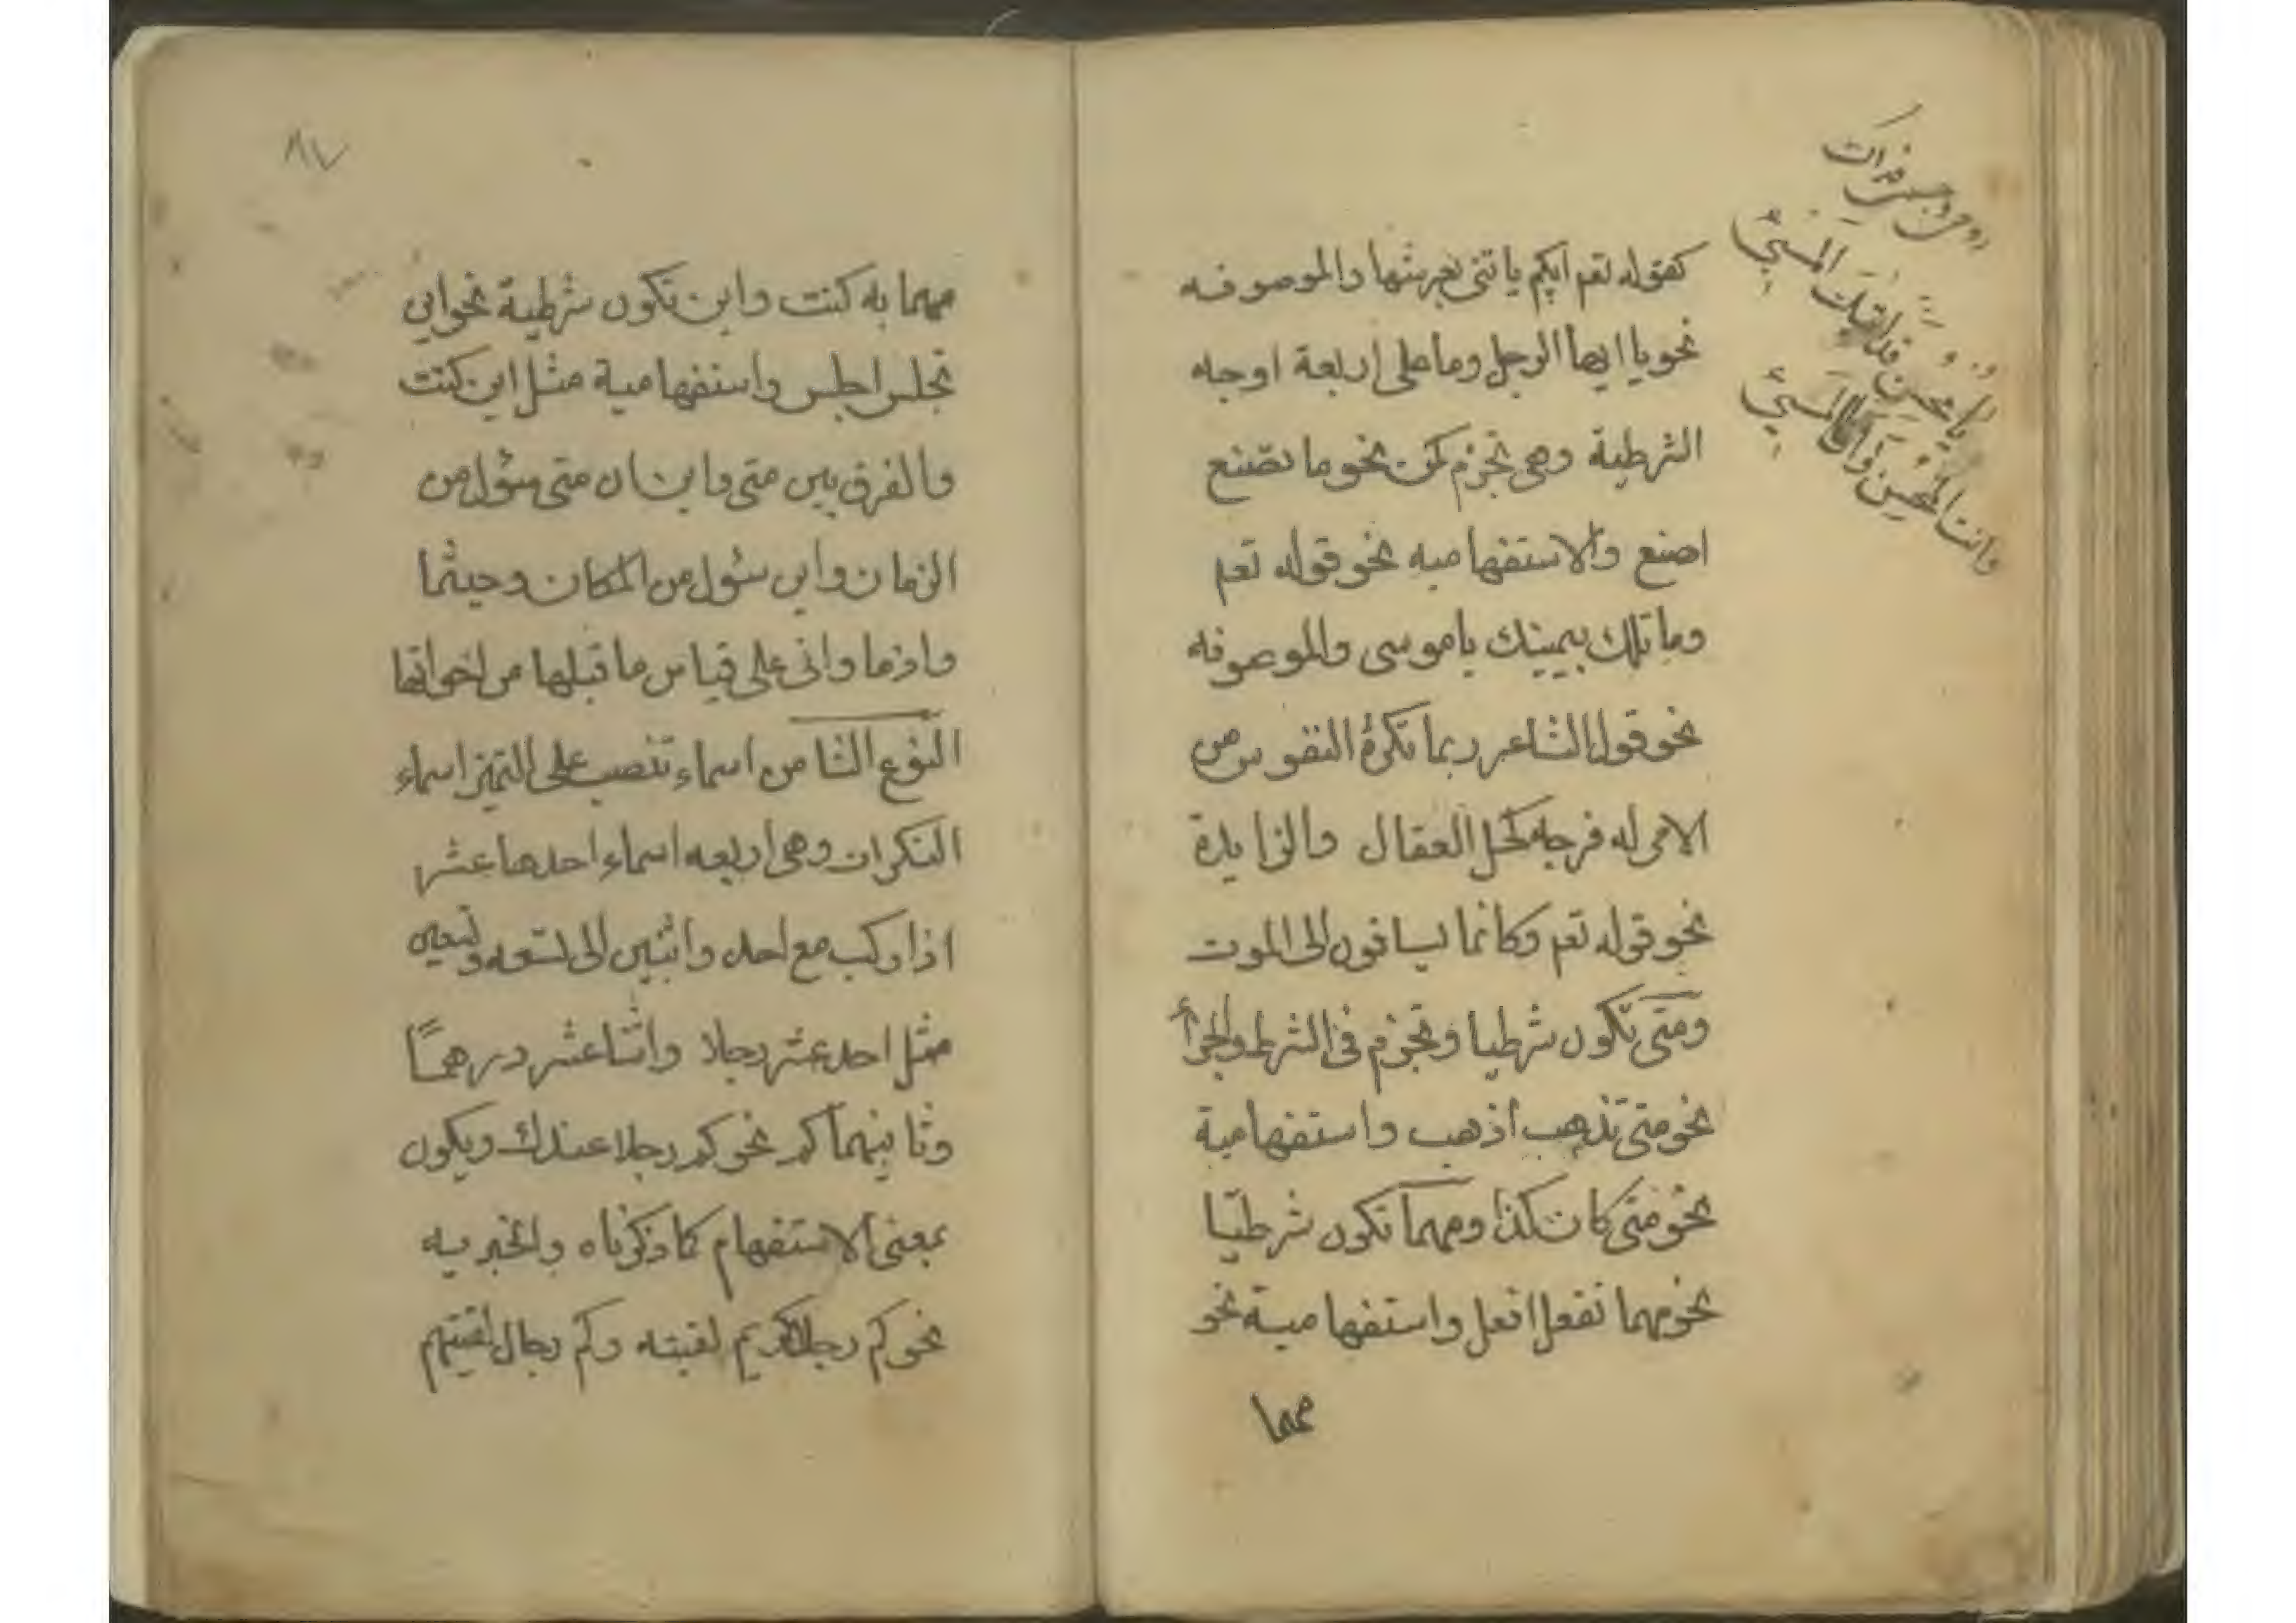 كقوله تعم ايكم ياتني بعرشها والموصوفه
نحو يا ايها الرجل وما على اربعة اوجه
الشرطية وهي تجزم كمن نحو ما تصنع
اصنع والاستفهاميه نحو قوله تعم
وما تلك بيمينك ياموسى والموصوفه
نحو قول الشاعر ربما تكرهُ النفوس من
الامر له فرجه كحل العقال والزايدة
نحو قوله تعم وكانما يساقون الى الموت
ومتى تكون شرطيا وتجزم في الشرط والجزأ
نحو متى تذهب اذهب واستفهامية
نحو متى كان كذا ومهما تكون شرطيّا
نحو مهما تفعل افعل واستفهامية نحو
مهما
يا محسن قد اتيك المسيئ
وانت المحسن وانا المسيئ
٨٧
مهما به كنت واين تكون شرطية نحو اين
تجلس اجلس واستفهامية مثل اين كنت
والفرق بين متى واين ان متى سؤل من
الزمان واين سؤل من المكان وحيثما
واذما وانى على قياس ما قبلها من اخواتها
النوع الثامن اسماء تنصب على التميز اسماء
النكرات وهى اربعه اسماء احدها عشر
اذا ركب مع احد واثنين الى تسعه وتسعين
مثل احد عشر رجلا واثنا عشر درهمًا
وثانيهما كم نحو كم رجلا عندك ويكون
بمعنى الاستفهام كما ذكرناه والخبريه
نحو كم رجل كريم لقيته وكم رجال لقيتهم